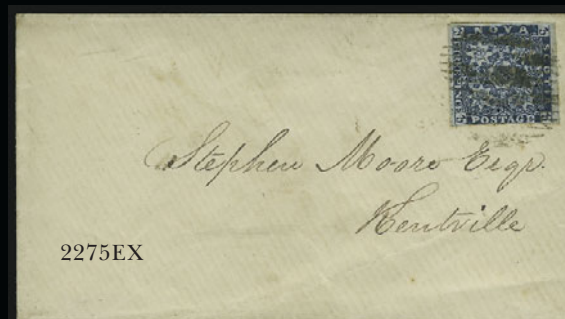 NOVA
POSTAGE
Stephen Moore Esqr.
Kentville
2275EX